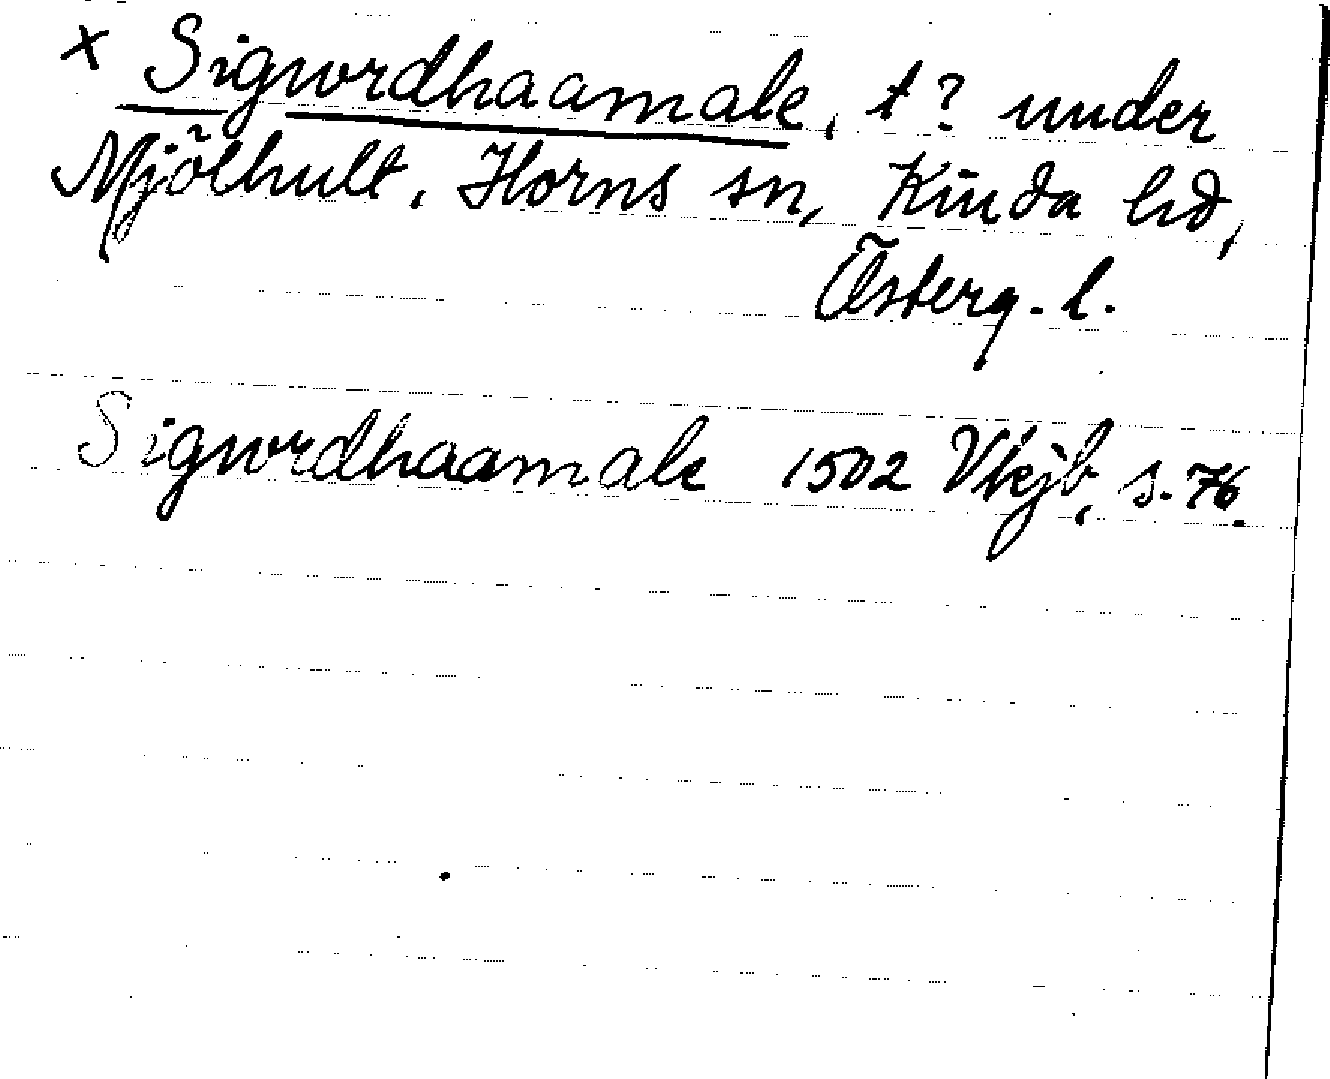 x Sigwrdhaamale, t? under
Mjölhult, Horns sn, Kinda hd,
Österg. l.
Sigwrdhaamale 1502 Vkjb, s. 76.